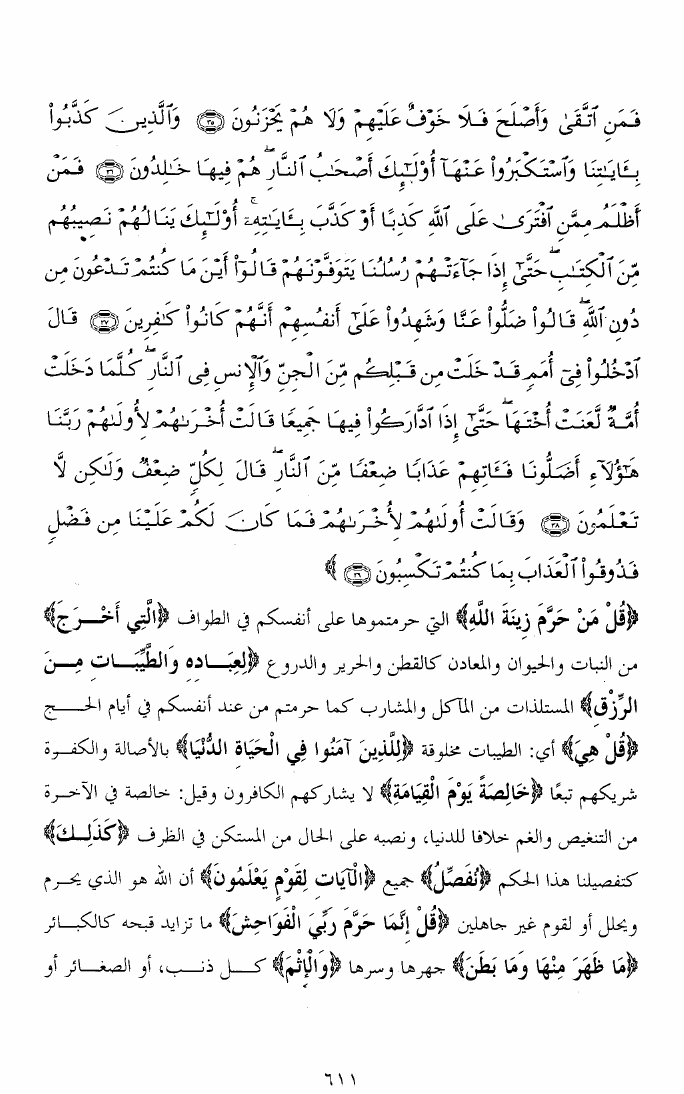 فَمَنِ ٱتَّقَىٰ وَأَصْلَحَ فَلَا خَوْفٌ عَلَيْهِمْ وَلَا هُمْ يَحْزَنُونَ ٣٥ وَٱلَّذِينَ كَذَّبُوا۟
بِـَٔايَـٰتِنَا وَٱسْتَكْبَرُوا۟ عَنْهَآ أُو۟لَـٰٓئِكَ أَصْحَـٰبُ ٱلنَّارِ ۖ هُمْ فِيهَا خَـٰلِدُونَ ٣٦ فَمَنْ
أَظْلَمُ مِمَّنِ ٱفْتَرَىٰ عَلَى ٱللَّهِ كَذِبًا أَوْ كَذَّبَ بِـَٔايَـٰتِهِۦٓ ۚ أُو۟لَـٰٓئِكَ يَنَالُهُمْ نَصِيبُهُم
مِّنَ ٱلْكِتَـٰبِ ۖ حَتَّىٰٓ إِذَا جَآءَتْهُمْ رُسُلُنَا يَتَوَفَّوْنَهُمْ قَالُوٓا۟ أَيْنَ مَا كُنتُمْ تَدْعُونَ مِن
دُونِ ٱللَّهِ ۖ قَالُوا۟ ضَلُّوا۟ عَنَّا وَشَهِدُوا۟ عَلَىٰٓ أَنفُسِهِمْ أَنَّهُمْ كَانُوا۟ كَـٰفِرِينَ ٣٧ قَالَ
ٱدْخُلُوا۟ فِىٓ أُمَمٍ قَدْ خَلَتْ مِن قَبْلِكُم مِّنَ ٱلْجِنِّ وَٱلْإِنسِ فِى ٱلنَّارِ ۖ كُلَّمَا دَخَلَتْ
أُمَّةٌ لَّعَنَتْ أُخْتَهَا ۖ حَتَّىٰٓ إِذَا ٱدَّارَكُوا۟ فِيهَا جَمِيعًا قَالَتْ أُخْرَىٰهُمْ لِأُولَىٰهُمْ رَبَّنَا
هَـٰٓؤُلَآءِ أَضَلُّونَا فَـَٔاتِهِمْ عَذَابًا ضِعْفًا مِّنَ ٱلنَّارِ ۖ قَالَ لِكُلٍّ ضِعْفٌ وَلَـٰكِن لَّا
تَعْلَمُونَ ٣٨ وَقَالَتْ أُولَىٰهُمْ لِأُخْرَىٰهُمْ فَمَا كَانَ لَكُمْ عَلَيْنَا مِن فَضْلٍ
فَذُوقُوا۟ ٱلْعَذَابَ بِمَا كُنتُمْ تَكْسِبُونَ ٣٩ ﴾
﴿قُلْ مَنْ حَرَّمَ زِينَةَ اللَّهِ﴾ التي حرمتموها على أنفسكم في الطواف ﴿الَّتِي أَخْرَجَ﴾
من النبات والحيوان والمعادن كالقطن والحرير والدروع ﴿لِعِبَادِهِ وَالطَّيِّبَاتِ مِنَ
الرِّزْقِ﴾ المستلذات من المآكل والمشارب كما حرمتم من عند أنفسكم في أيام الحج
﴿قُلْ هِيَ﴾ أي: الطيبات مخلوقة ﴿لِلَّذِينَ آمَنُوا فِي الْحَيَاةِ الدُّنْيَا﴾ بالأصالة والكفرة
شريكهم تبعًا ﴿خَالِصَةً يَوْمَ الْقِيَامَةِ﴾ لا يشاركهم الكافرون وقيل: خالصة في الآخرة
من التنغيص والغم خلافا للدنيا، ونصبه على الحال من المستكن في الظرف ﴿كَذَلِكَ﴾
كتفصيلنا هذا الحكم ﴿نُفَصِّلُ﴾ جميع ﴿الْآيَاتِ لِقَوْمٍ يَعْلَمُونَ﴾ أن الله هو الذي يحرم
ويحلل أو لقوم غير جاهلين ﴿قُلْ إِنَّمَا حَرَّمَ رَبِّيَ الْفَوَاحِشَ﴾ ما تزايد قبحه كالكبائر
﴿مَا ظَهَرَ مِنْهَا وَمَا بَطَنَ﴾ جهرها وسرها ﴿وَالْإِثْمَ﴾ كل ذنب، أو الصغائر أو
٦١١